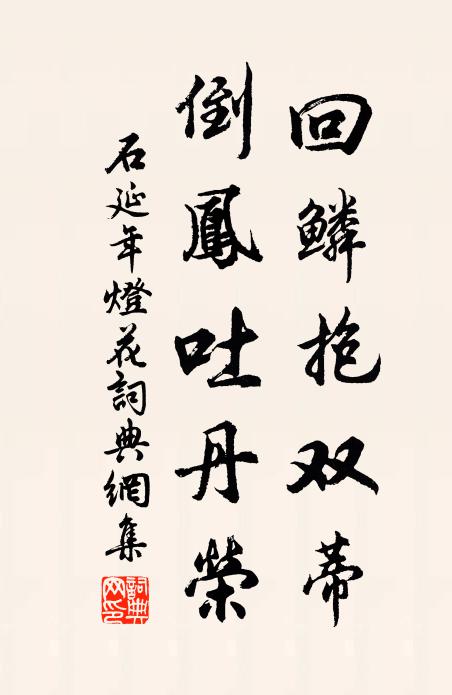 回鱗抱双蒂
倒鳳吐丹榮
石延年燈花詞典網集
詞典網印